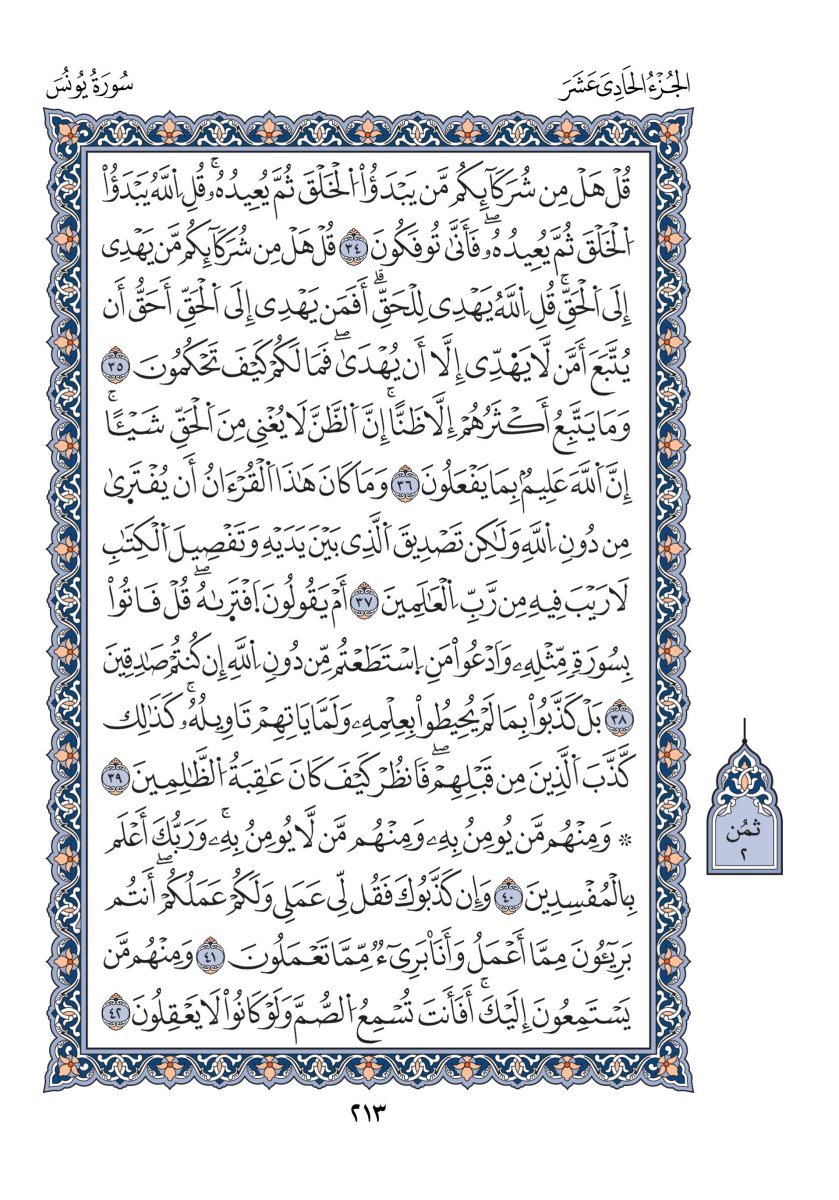 الجُزْءُ الحَادِى عَشَرَ
سُورَةُ يُونُسَ
قُلْ هَلْ مِن شُرَكَآئِكُم مَّن يَبْدَؤُاْ اُ۬لْخَلْقَ ثُمَّ يُعِيدُهُۥۚ قُلِ اِ۬للَّهُ يَبْدَؤُاْ
اُ۬لْخَلْقَ ثُمَّ يُعِيدُهُۥۖ فَأَنَّىٰ تُوفَكُونَ ٣٤ قُلْ هَلْ مِن شُرَكَآئِكُم مَّن يَهْدِى
إِلَى اَ۬لْحَقِّۚ قُلِ اِ۬للَّهُ يَهْدِى لِلْحَقِّۗ أَفَمَن يَهْدِى إِلَى اَ۬لْحَقِّ أَحَقُّ أَن
يُتَّبَعَ أَمَّن لَّا يَهَدِّى إِلَّا أَن يُهْدَىٰۖ فَمَا لَكُمْ كَيْفَ تَحْكُمُونَ ٣٥
وَمَا يَتَّبِعُ أَكْثَرُهُمْ إِلَّا ظَنًّاۚ إِنَّ اَ۬لظَّنَّ لَا يُغْنِى مِنَ اَ۬لْحَقِّ شَيْـًٔاۚ
إِنَّ اَ۬للَّهَ عَلِيمُۢ بِمَا يَفْعَلُونَ ٣٦ وَمَا كَانَ هَٰذَا اَ۬لْقُرْءَانُ أَن يُفْتَرِىٰ
مِن دُونِ اِ۬للَّهِ وَلَٰكِن تَصْدِيقَ اَ۬لَّذِى بَيْنَ يَدَيْهِ وَتَفْصِيلَ اَ۬لْكِتَٰبِ
لَا رَيْبَ فِيهِ مِن رَّبِّ اِ۬لْعَٰلَمِينَ ٣٧ أَمْ يَقُولُونَ اَ۪فْتَرِىٰهُۖ قُلْ فَاتُواْ
بِسُورَةٍ مِّثْلِهِۦ وَادْعُواْ مَنِ اِ۪سْتَطَعْتُم مِّن دُونِ اِ۬للَّهِ إِن كُنتُمْ صَٰدِقِينَ
٣٨ بَلْ كَذَّبُواْ بِمَا لَمْ يُحِيطُواْ بِعِلْمِهِۦ وَلَمَّا يَاتِهِمْ تَاوِيلُهُۥۚ كَذَٰلِك
كَّذَّبَ اَ۬لَّذِينَ مِن قَبْلِهِمْۖ فَانظُرْ كَيْفَ كَانَ عَٰقِبَةُ اُ۬لظَّٰلِمِينَ ٣٩
۞ وَمِنْهُم مَّن يُومِنُ بِهِۦ وَمِنْهُم مَّن لَّا يُومِنُ بِهِۦۚ وَرَبُّكَ أَعْلَم
بِالْمُفْسِدِينَ ٤٠ وَإِن كَذَّبُوكَ فَقُل لِّى عَمَلِى وَلَكُمْ عَمَلُكُمْۖ أَنتُم
بَرِيٓـُٔونَ مِمَّا أَعْمَلُ وَأَنَا۠ بَرِىٓءٌ مِّمَّا تَعْمَلُونَ ٤١ وَمِنْهُم مَّن
يَسْتَمِعُونَ إِلَيْكَۚ أَفَأَنتَ تُسْمِعُ اُ۬لصُّمَّ وَلَوْ كَانُواْ لَا يَعْقِلُونَ ٤٢
ثُمُن
٢
٢١٣